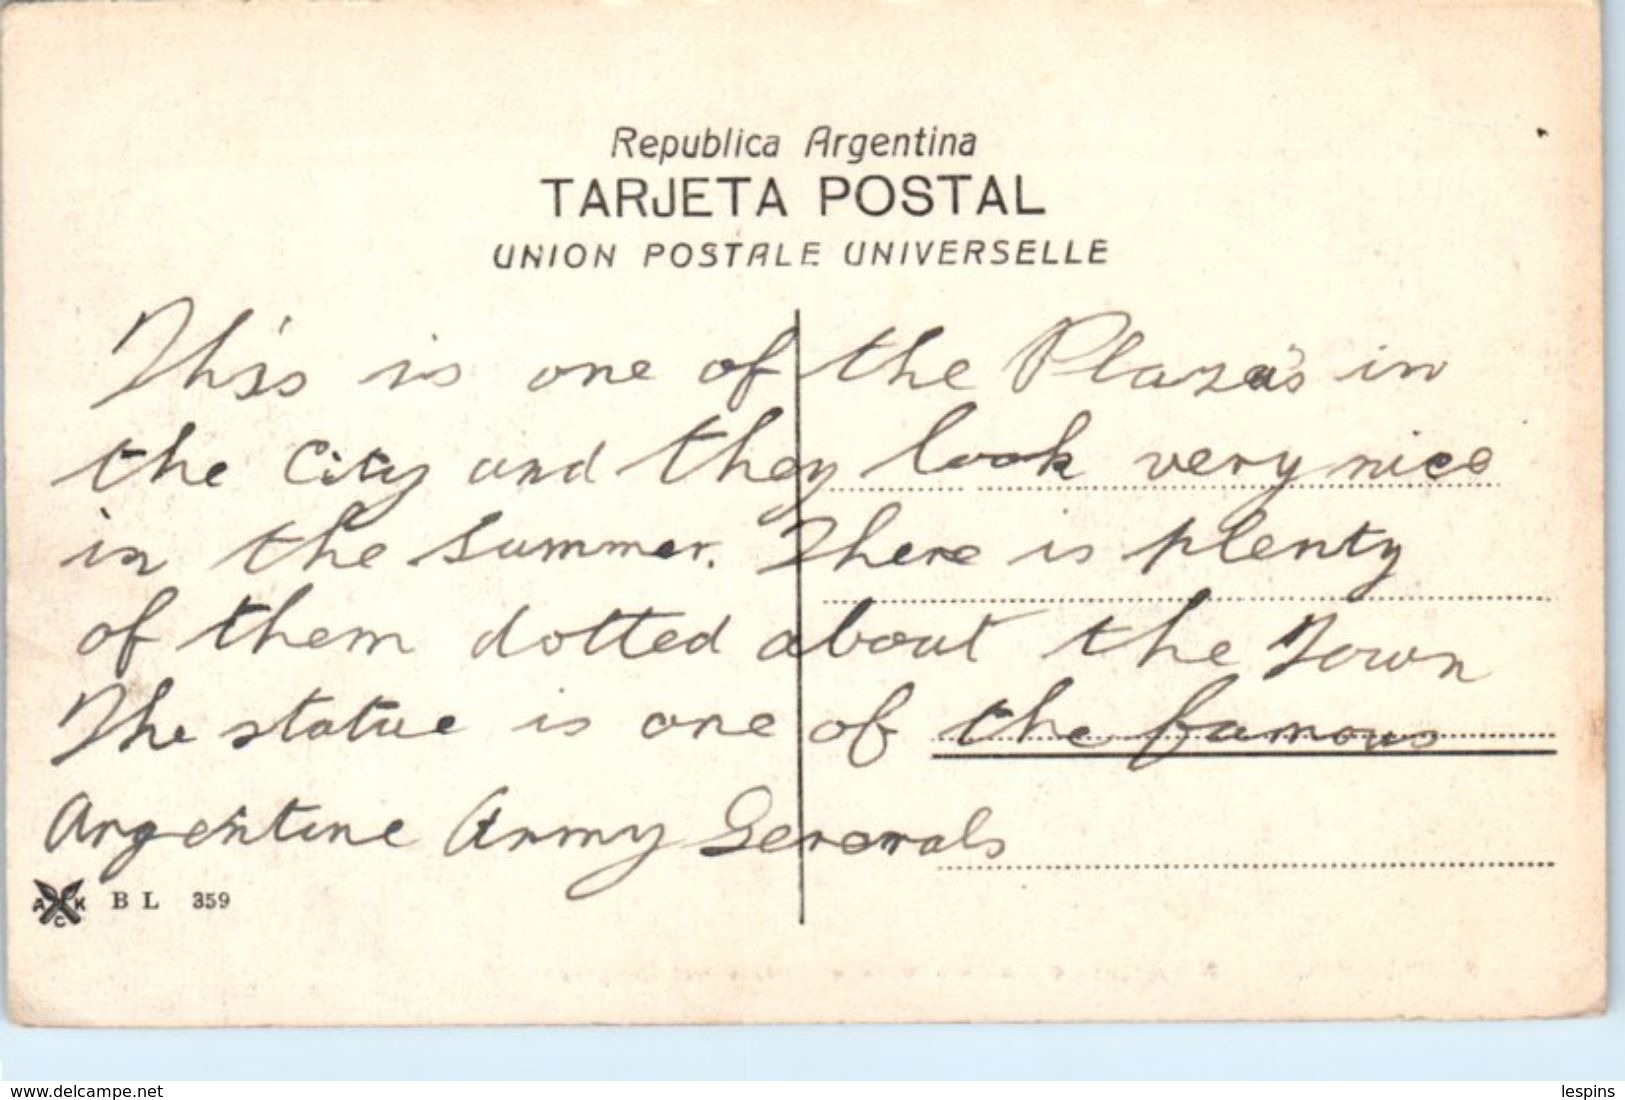 Republica Argentina
TARJETA POSTAL
UNION POSTALE UNIVERSELLE
This is one of the Plaza's in
the City and they look very nice
in the Summer. There is plenty
of them dotted about the Town
The statue is one of the famous
Argentine Army Generals
A C K B L 359
www.delcampe.net
lespins